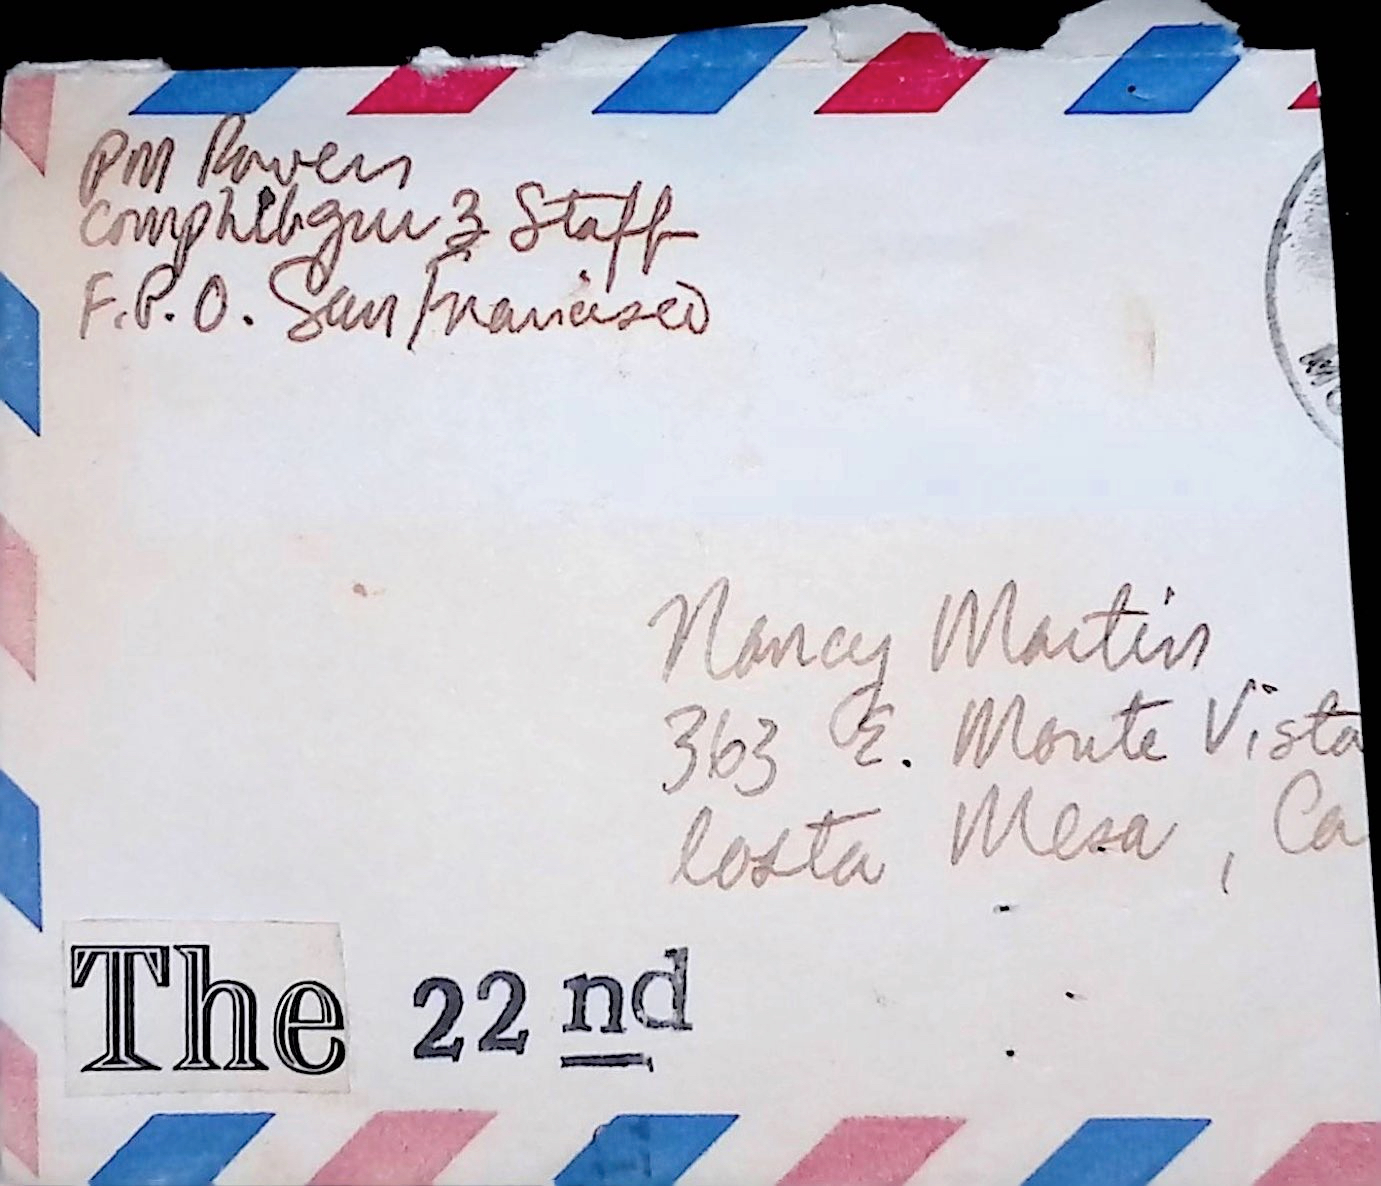 PM Powers
Comphibgru 3 Staff
F.P.O. San Francisco
Nancy Martin
363 E. Monte Vista
Costa Mesa, Ca
The 22nd